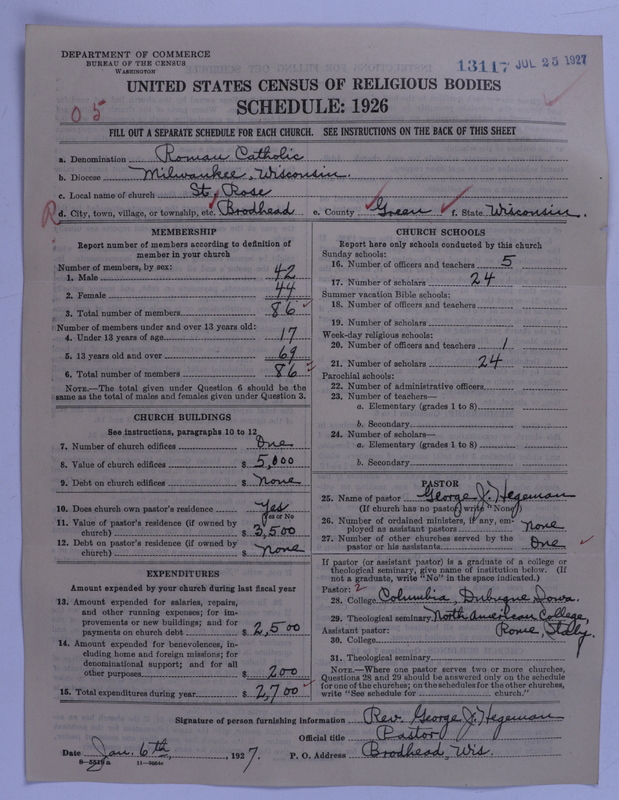 DEPARTMENT OF COMMERCE
BUREAU OF THE CENSUS
WASHINGTON
13117 JUL 25 1927
UNITED STATES CENSUS OF RELIGIOUS BODIES
SCHEDULE: 1926
05
FILL OUT A SEPARATE SCHEDULE FOR EACH CHURCH. SEE INSTRUCTIONS ON THE BACK OF THIS SHEET
a. Denomination Roman Catholic
b. Diocese Milwaukee, Wisconsin.
c. Local name of church St. Rose
R d. City, town, village, or township, etc. Brodhead e. County Green f. State Wisconsin.
MEMBERSHIP
Report number of members according to definition of
member in your church
Number of members, by sex:
1. Male 42
2. Female 44
3. Total number of members 86
Number of members under and over 13 years old:
4. Under 13 years of age 17
5. 13 years old and over 69
6. Total number of members 86
NOTE.—The total given under Question 6 should be the
same as the total of males and females given under Question 3.
CHURCH BUILDINGS
See instructions, paragraphs 10 to 12
7. Number of church edifices One
8. Value of church edifices $ 5,000
9. Debt on church edifices $ None
10. Does church own pastor's residence Yes
Yes or No
11. Value of pastor's residence (if owned by
church) $ 3,500
12. Debt on pastor's residence (if owned by
church) $ none
EXPENDITURES
Amount expended by your church during last fiscal year
13. Amount expended for salaries, repairs,
and other running expenses; for im-
provements or new buildings; and for
payments on church debt $ 2,500
14. Amount expended for benevolences, in-
cluding home and foreign missions; for
denominational support; and for all
other purposes $ 200
15. Total expenditures during year $ 2,700
CHURCH SCHOOLS
Report here only schools conducted by this church
Sunday schools:
16. Number of officers and teachers 5
17. Number of scholars 24
Summer vacation Bible schools:
18. Number of officers and teachers
19. Number of scholars
Week-day religious schools:
20. Number of officers and teachers 1
21. Number of scholars 24
Parochial schools:
22. Number of administrative officers
23. Number of teachers—
a. Elementary (grades 1 to 8)
b. Secondary
24. Number of scholars—
a. Elementary (grades 1 to 8)
b. Secondary
PASTOR
25. Name of pastor George J. Hegeman
(If church has no pastor, write "None")
26. Number of ordained ministers, if any, em-
ployed as assistant pastors none
27. Number of other churches served by the
pastor or his assistants One
If pastor (or assistant pastor) is a graduate of a college or
theological seminary, give name of institution below. (If
not a graduate, write "No" in the space indicated.)
Pastor: 2
28. College Columbia, Dubuque Iowa.
29. Theological seminary North American College,
Assistant pastor: Rome, Italy.
30. College
31. Theological seminary
NOTE.—Where one pastor serves two or more churches,
Questions 28 and 29 should be answered only on the schedule
for one of the churches; on the schedules for the other churches,
write "See schedule for church."
Signature of person furnishing information Rev. George J. Hegeman
Official title Pastor
Date Jan. 6th, 1927. P. O. Address Brodhead, Wis.